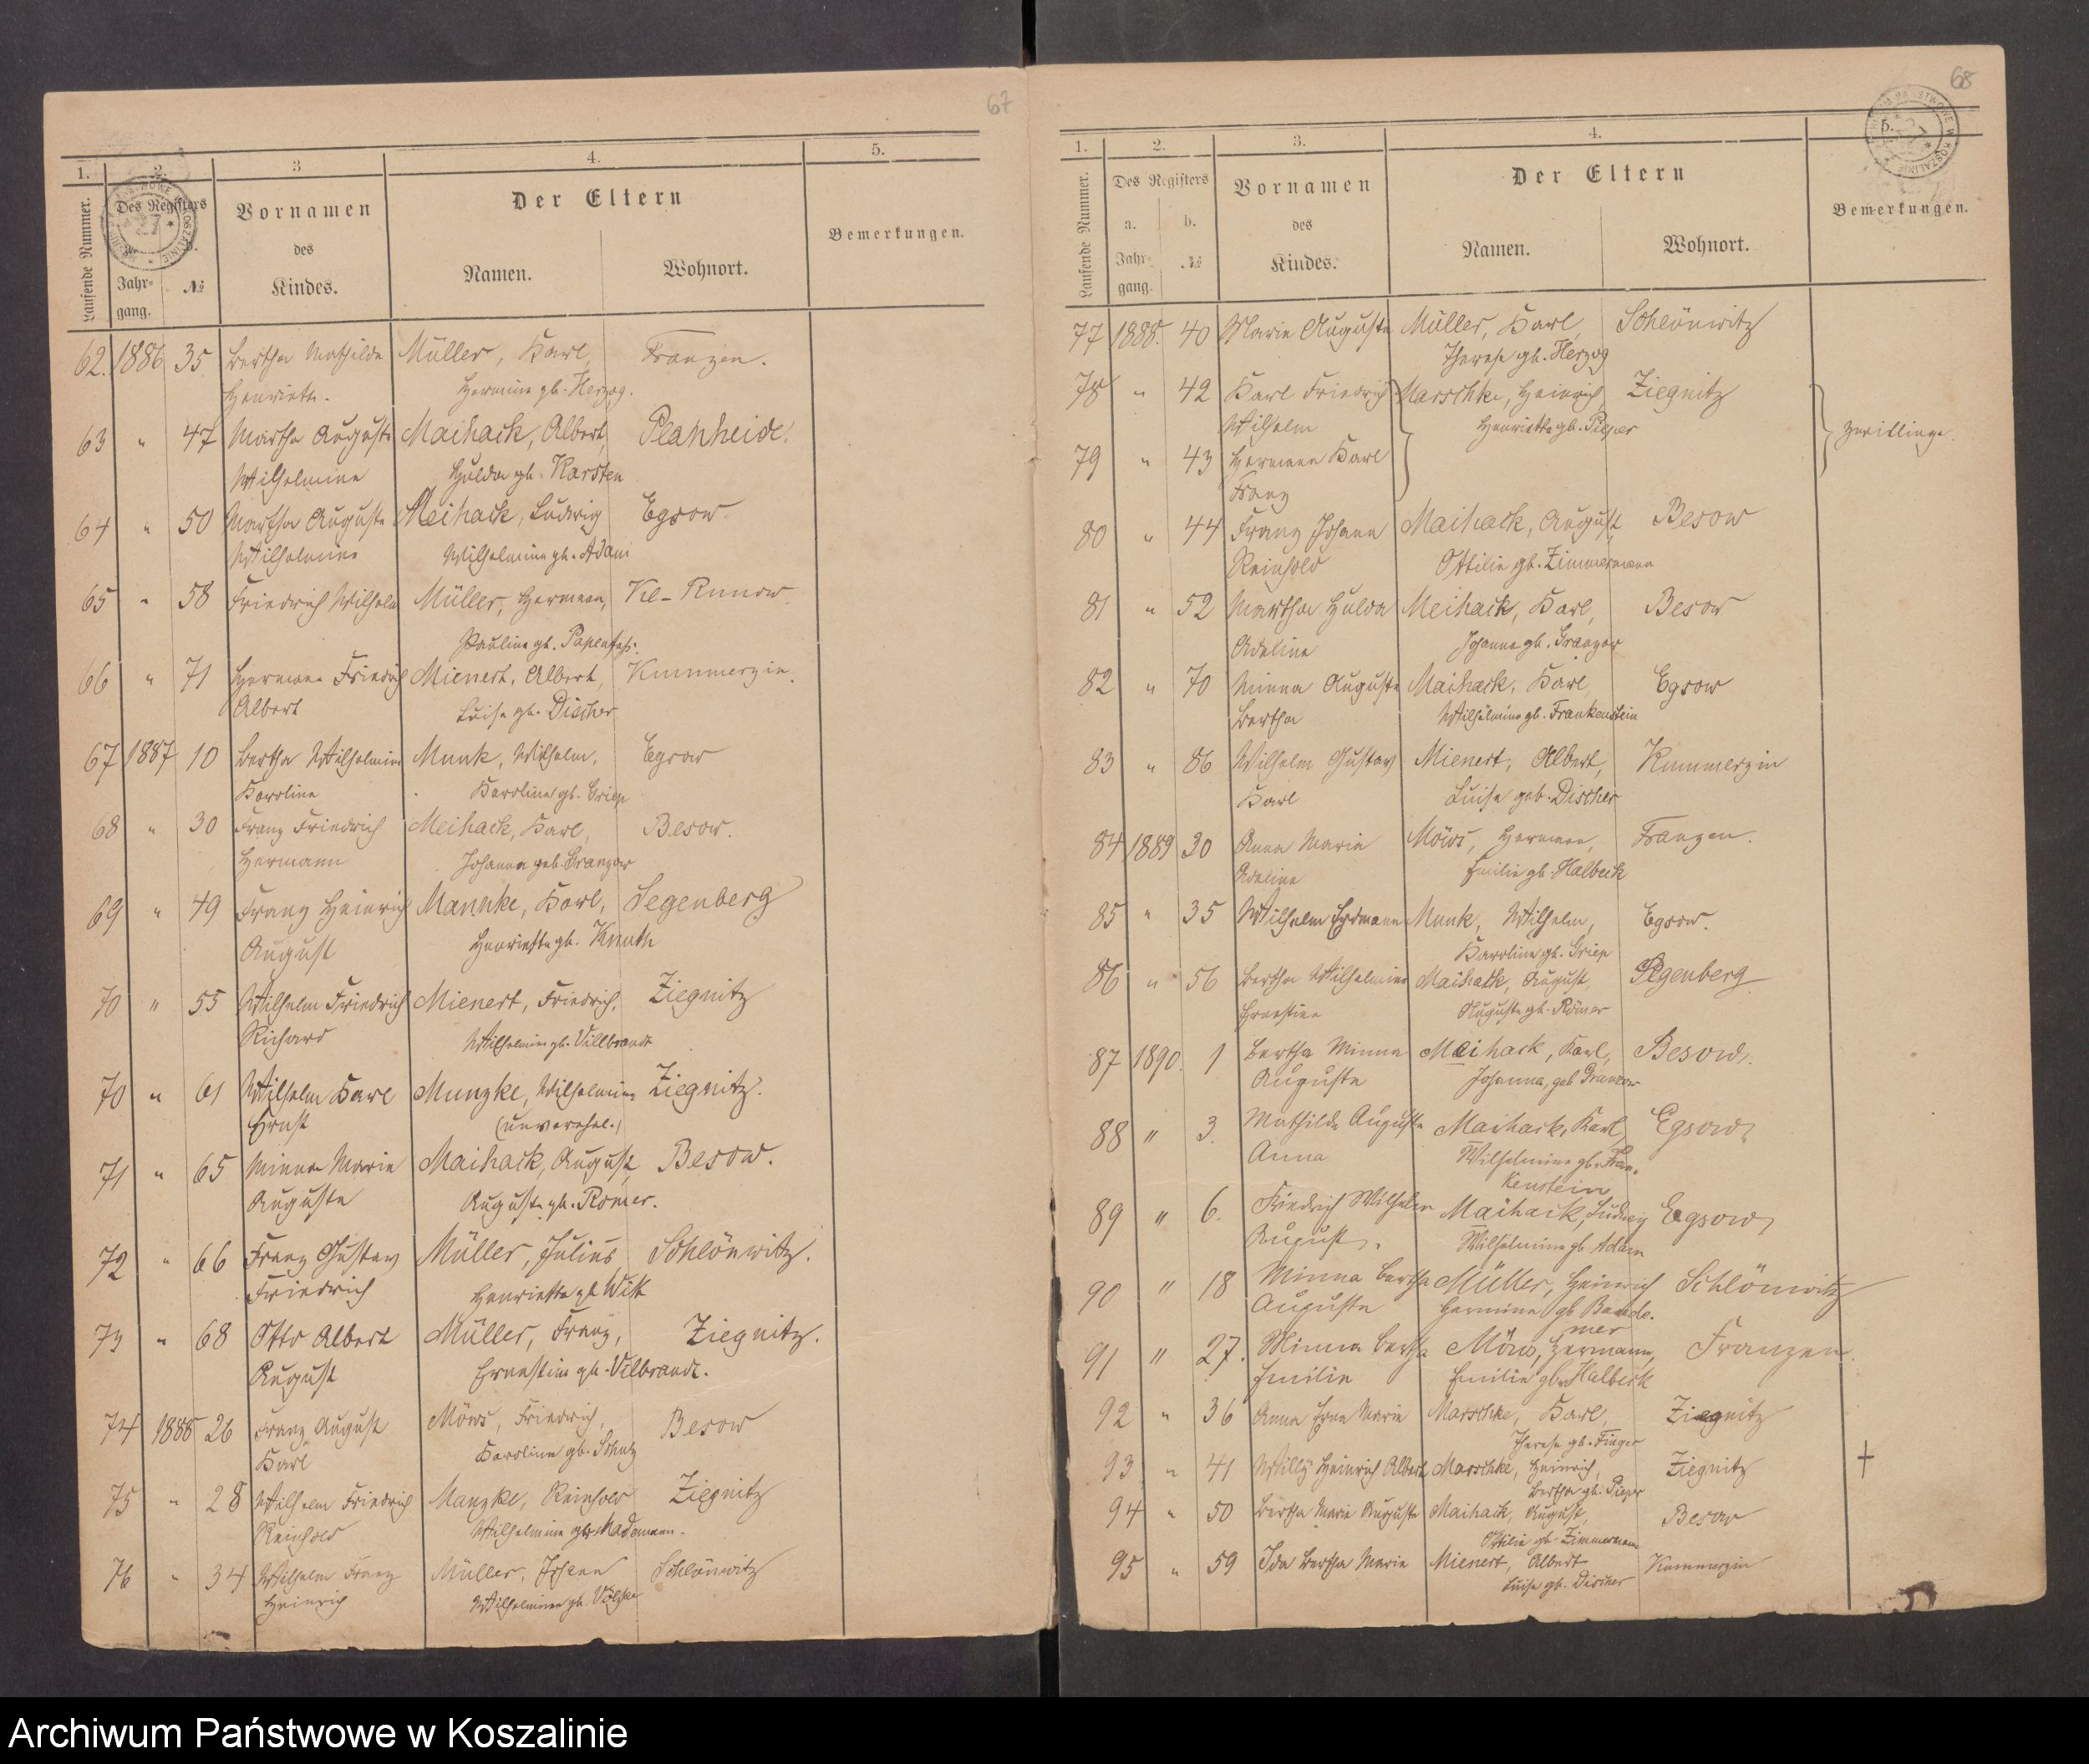 67
1. 2. 3 4. 5.
Laufende Nummer. Des Registers Vornamen des Kindes. Der Eltern Bemerkungen.
Jahrgang. № Namen. Wohnort.
62. 1886 35 Bertha Mathilde Müller, Karl, Franzen.
Henriette. Hermine gb. Herzog.
63 " 47 Martha Auguste Maihack, Albert, Planheide.
Wilhelmine Hulda gb. Karsten
64 " 50 Martha Auguste Meihack, Ludwig Egsow.
Wilhelmine Wilhelmine gb. Adam
65 " 58 Friedrich Wilhelm Müller, Hermann, Kl-Runow.
Pauline gb. Papenfuß.
66 " 71 Hermann Friedrich Mienert, Albert, Kummerzin.
Albert Luise gb. Discher
67 1887 10 Bertha Wilhelmine Munk, Wilhelm, Egsow
Karoline Karoline gb. Griep
68 " 30 Franz Friedrich Meihack, Karl, Besow.
Hermann Johanna geb. Granzow
69 " 49 Franz Heinrich Mannke, Karl, Segenberg
August Henriette gb. Knuth
70 " 55 Wilhelm Friedrich Mienert, Friedrich, Ziegnitz
Richard Wilhelmine gb. Villbrandt
70 " 61 Wilhelm Karl Munzke, Wilhelmine Ziegnitz.
Ernst (unverehel.)
71 " 65 Minna Marie Maihack, August, Besow.
Auguste Auguste gb. Römer.
72 " 66 Franz Gustav Müller, Julius, Schlönwitz.
Friedrich Henriette gb. Witt
73 " 68 Otto Albert Müller, Franz, Ziegnitz.
August Ernestine gb. Vilbrandt.
74 1888 26 Franz August Möws, Friedrich, Besow
Karl Karoline gb. Schulz
75 " 28 Wilhelm Friedrich Manzke, Reinhold Ziegnitz
Reinhold Wilhelmine gb. Mademann.
76 " 34 Wilhelm Franz Müller, Johann Schlönwitz
Heinrich Wilhelmine gb. Völzke
68
1. 2. 3. 4. 5.
Laufende Nummer. Des Registers Vornamen des Kindes. Der Eltern Bemerkungen.
a. b.
Jahrgang. № Namen. Wohnort.
77 1888. 40 Marie Auguste Müller, Karl, Schlönwitz
Therese gb. Herzog
78 " 42 Karl Friedrich Marschke, Heinrich, Ziegnitz
Wilhelm Henriette gb. Pieper Zwillinge.
79 " 43 Hermann Karl
Franz
80 " 44 Franz Johann Maihack, August, Besow
Reinhold Ottilie gb. Zimmermann
81 " 52 Martha Hulda Meihack, Karl, Besow
Adeline Johanna gb. Granzow
82 " 70 Minna Auguste Maihack, Karl, Egsow
Bertha Wilhelmine gb. Frankenstein
83 " 86 Wilhelm Gustav Mienert, Albert, Kummerzin
Karl Luise geb. Discher
84 1889 30 Anna Maria Möws, Hermann, Franzen.
Adeline Emilie gb. Halbeck
85 " 35 Wilhelm Hermann Munk, Wilhelm, Egsow.
Karoline gb. Griep
86 " 56 Bertha Wilhelmine Maihack, August, Segenberg
Ernestine Auguste gb. Römer
87 1890. 1 Bertha Minna Meihack, Karl, Besow.
Auguste Johanna, geb Granzow
88 " 3. Mathilde Auguste Maihack, Karl, Egsow
Anna Wilhelmine gb. Fran-
kenstein
89 " 6. Friedrich Wilhelm Maihack, Ludwig Egsow
August. Wilhelmine gb Adam
90 " 18 Minna Bertha Müller, Heinrich Schlönwitz
Auguste Hermine gb Bande-
mer
91 " 27. Minna Bertha Möws, Hermann, Franzen.
Emilie Emilie gb. Halbeck
92 " 36 Anna Erna Marie Marschke, Karl, Ziegnitz
Therese gb. Finger
93 " 41 Willy Heinrich Albert Marschke, Heinrich, Ziegnitz †
Bertha gb. Pieper
94 " 50 Bertha Marie Auguste Maihack, August, Besow
Ottilie gb Zimmermann
95 " 59 Ida Bertha Marie Mienert, Albert Kummerzin
Luise gb. Discher
Archiwum Państwowe w Koszalinie